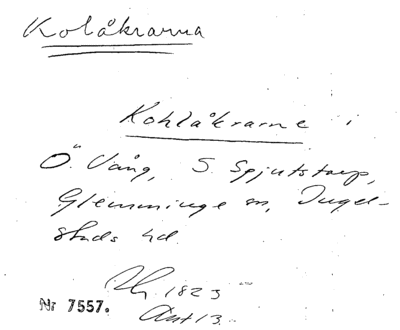 Kolåkrarna
Kohlåkrarne i
Ö. Vång, S. Spjutstorp,
Glemminge sn, Ingel-
stads hd
1823
Akt 13.
Nr 7557.